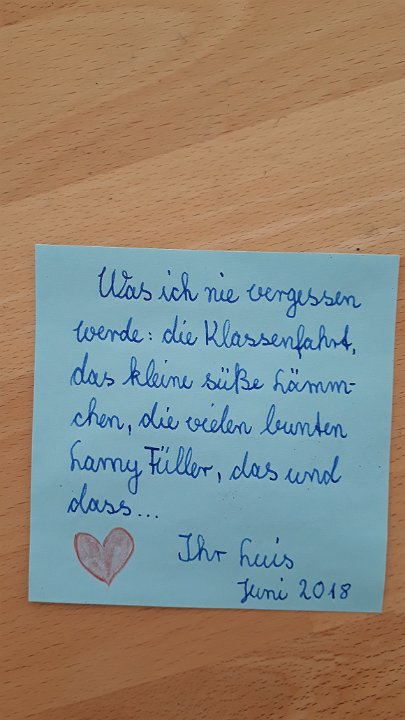 Was ich nie vergessen
werde: die Klassenfahrt,
das kleine süße Lämm-
chen, die vielen bunten
Lamy Füller, das und
dass...
Ihr Luis
Juni 2018